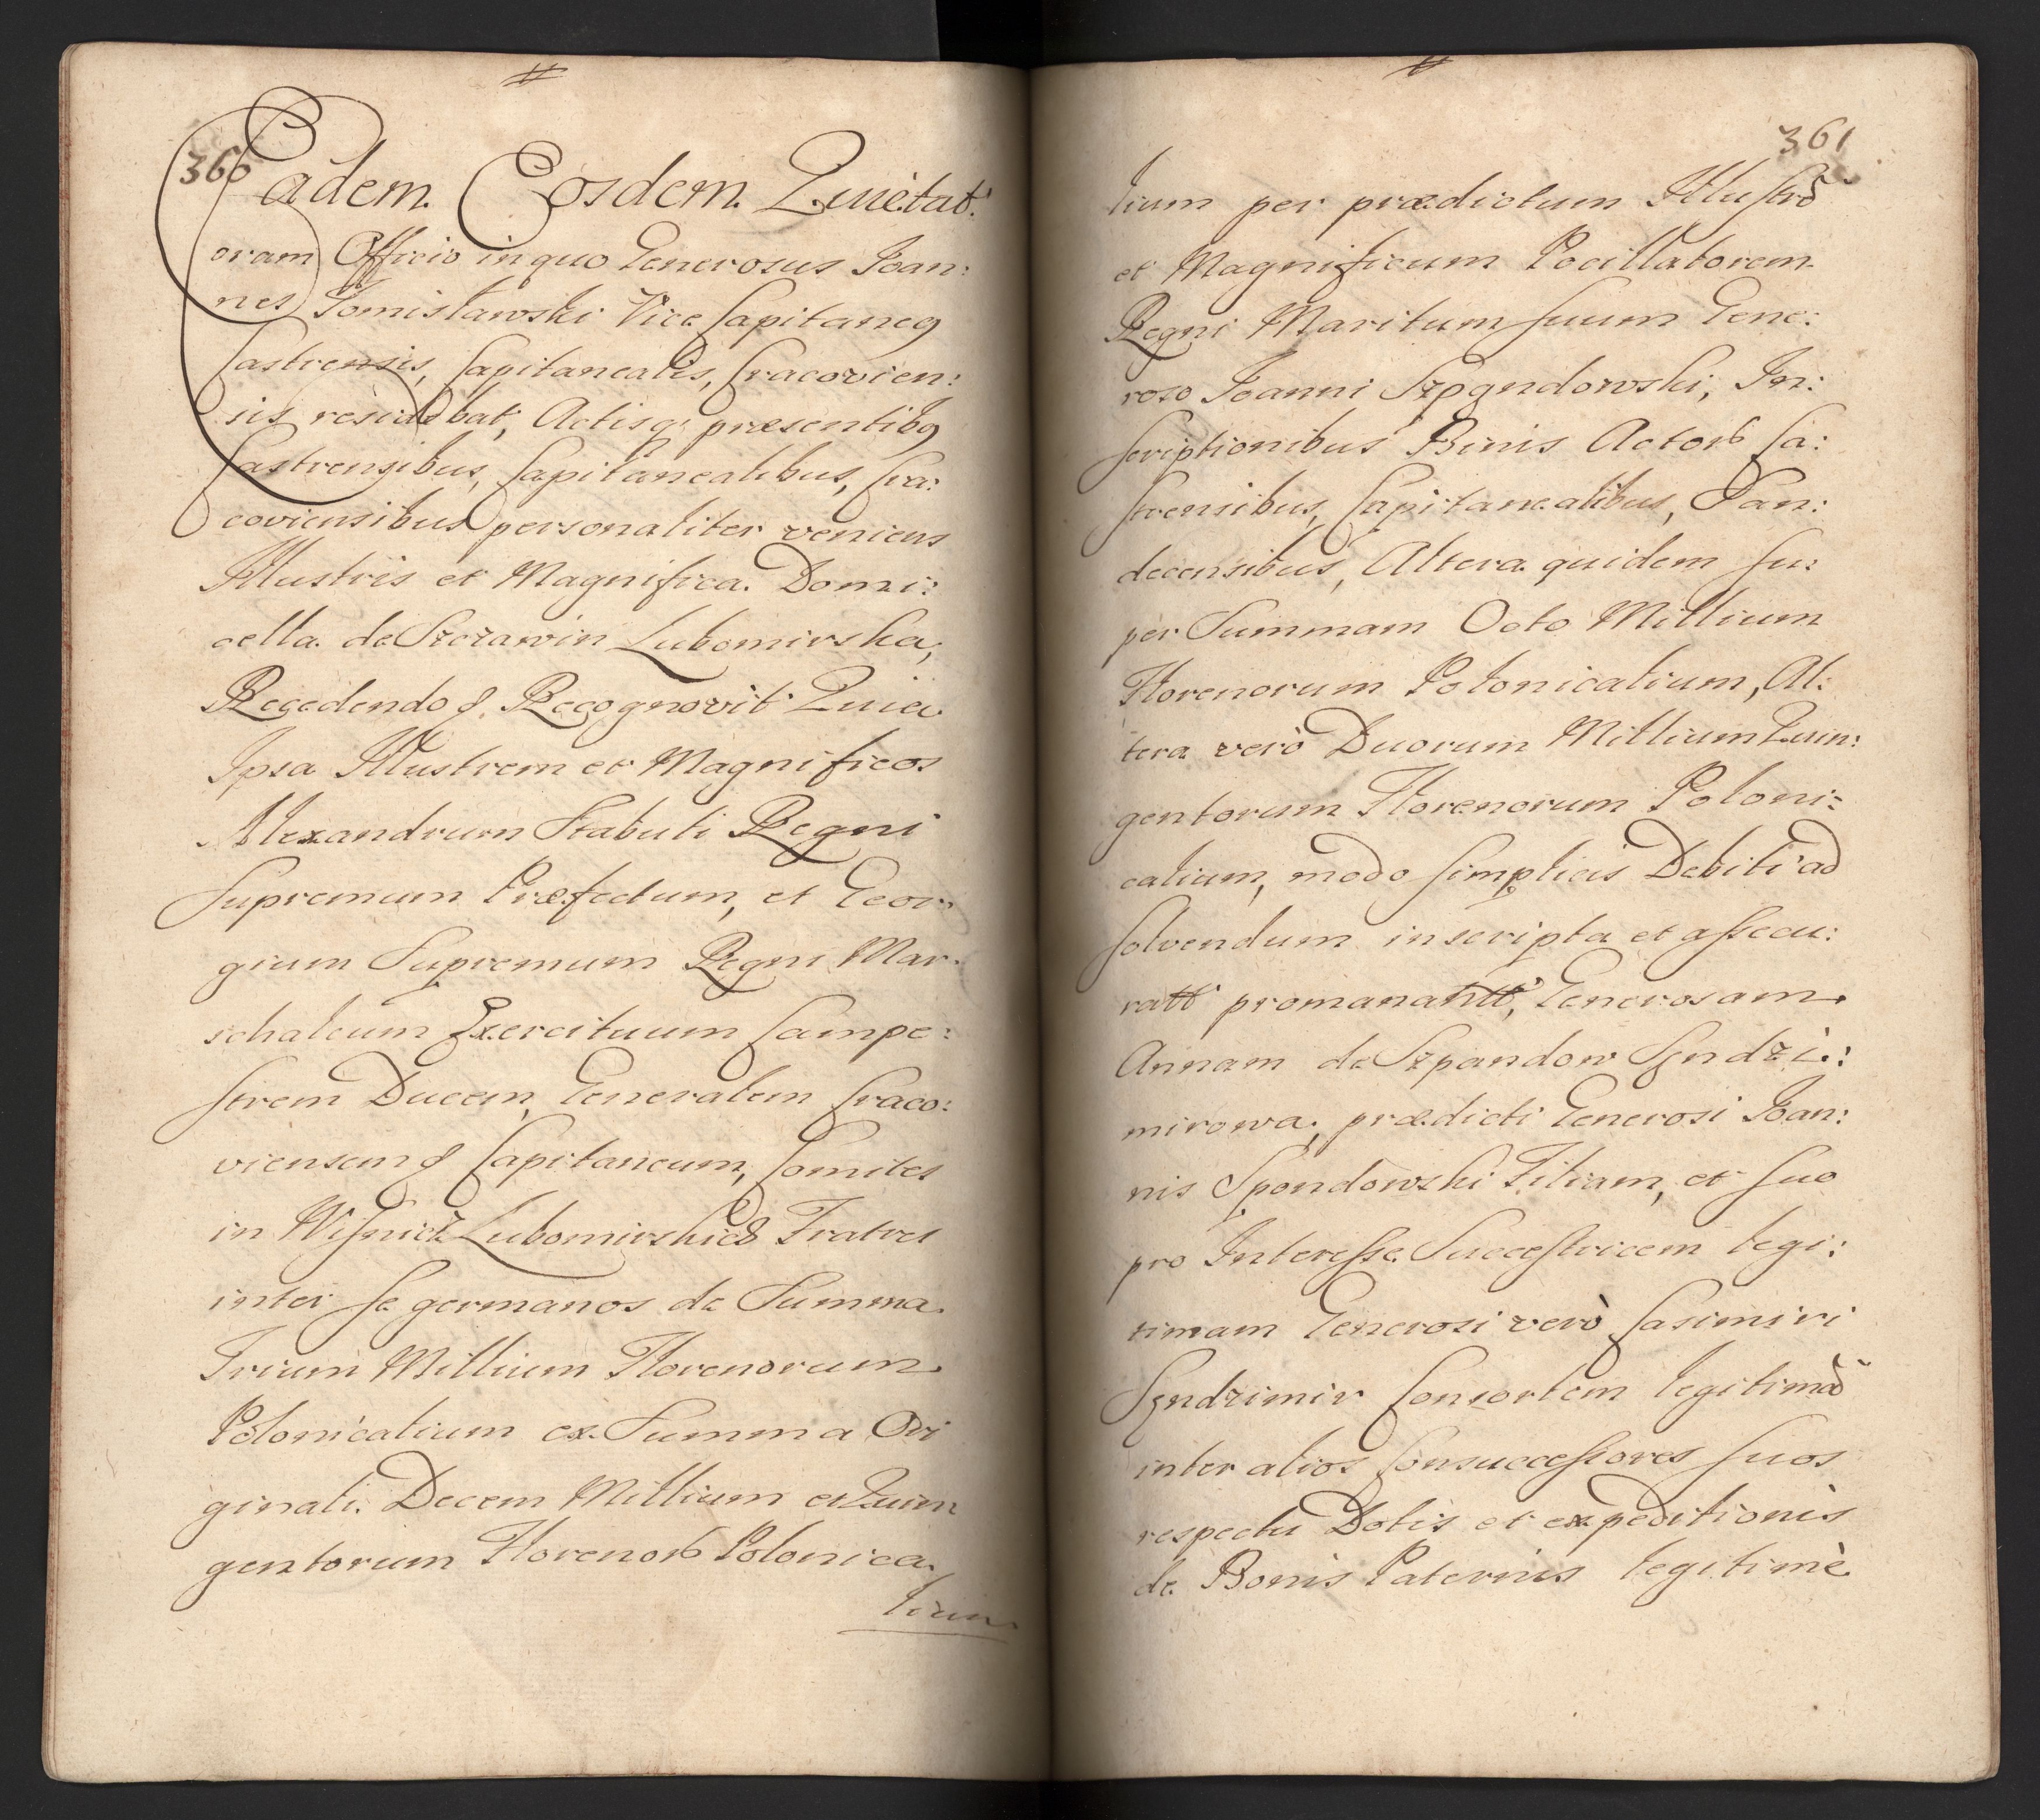 360
Eadem Eosdem Quietat.
Coram Officio in quo Generosus Joan:
nes Tomisławski Vice Capitaneg
Castrensis, Capitanealis, Cracovien:
sis residebat, Actisq; præsentibg
Castrensibus, Capitanealibus, Cra:
coviensibus personaliter veniens
Illustris et Magnifica Domi:
cella de Szczawin Lubomirska,
Recedendo &. Recognovit Quia
Ipsa Illustrem et Magnificos
Alexandrum Stabuli Regni
Supremum Præfectum, et Geor:
gium Supremum Regni Mar:
schalcum Exercituum Campe:
strem Ducem, Generalem Craco:
viensem &. Capitaneum, Comites
in Wiſnicz Lubomirskie Fratres
inter se germanos de Summa
Trium Millium Florenorum
Polonicalium ex Summa Ori
ginali Decem Millium et Quin
gentorum Florenor Polonica
lium
361
lium per prædictum Illustrẽ
et Magnificum Pocillatorem
Regni Maritum suum Gene:
roso Joanni Szpqndowski, In:
scriptionibus Binis Actor Ca:
strensibus, Capitanealibus, San:
decensibus, Altera quidem Su:
per Summam Octo Millium
Florenorum Polonicalium, Al:
tera verò Duorum Millium Quin:
gentorum Florenorum Poloni:
calium, modo simplicis Debiti ad
solvendum inscripta et assecu:
ratt promanantt, Generosam
Annam de Szpandow Sęndzi:
mirowa, prædicti Generosi Joan:
nis Spondowski Filiam, et suo
pro Interesse Successtricem legi:
timam Generosi verò Casimiri
Sęndzimir Consortem legitimã
inter alios Consuccessores suos
respectu Dotis et expeditionis
de Bonis Paternis legitimè